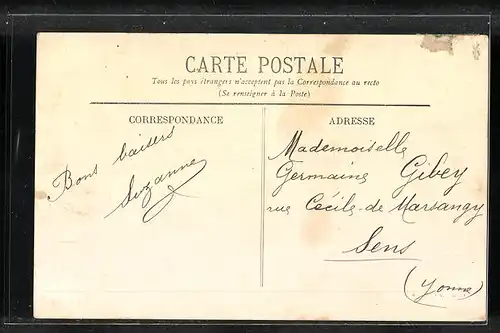 CARTE POSTALE
Tous les pays étrangers n'acceptent pas la Correspondance au recto
(Se renseigner à la Poste)
CORRESPONDANCE
Bons baisers
Suzanne
ADRESSE
Mademoiselle
Germaine Gibey
rue Cécile de Marsangy
Sens
(Yonne)